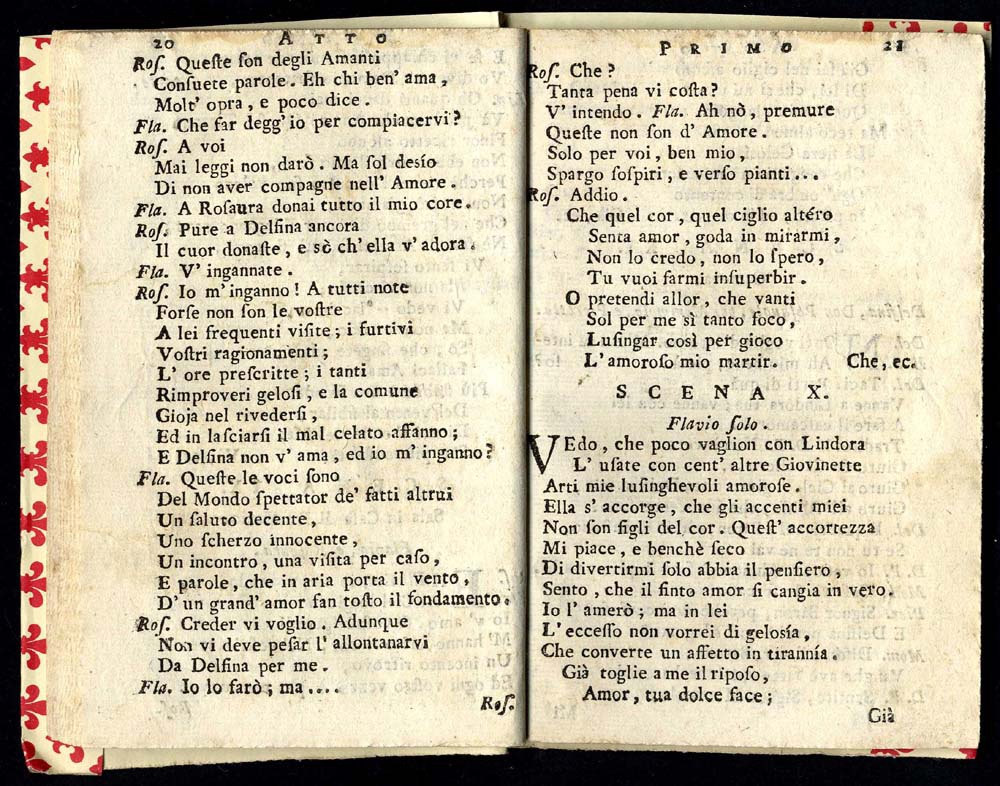 20 ATTO
Roſ. Queſte ſon degli Amanti
Conſuete parole. Eh chi ben' ama,
Molt' opra, e poco dice.
Fla. Che far degg' io per compiacervi?
Roſ. A voi
Mai leggi non darò. Ma ſol desío
Di non aver compagne nell' Amore.
Fla. A Roſaura donai tutto il mio core.
Roſ. Pure a Delfina ancora
Il cuor donaſte, e sò ch' ella v' adora.
Fla. V' ingannate.
Roſ. Io m' inganno! A tutti note
Forſe non ſon le voſtre
A lei frequenti viſite; i furtivi
Voſtri ragionamenti;
L' ore preſcritte; i tanti
Rimproveri geloſi, e la comune
Gioja nel rivederſi,
Ed in laſciarſi il mal celato affanno;
E Delfina non v' ama, ed io m' inganno?
Fla. Queſte le voci ſono
Del Mondo ſpettator de' fatti altrui
Un ſaluto decente,
Uno ſcherzo innocente,
Un incontro, una viſita per caſo,
E parole, che in aria porta il vento,
D' un grand' amor fan toſto il fondamento.
Roſ. Creder vi voglio. Adunque
Non vi deve peſar l' allontanarvi
Da Delfina per me.
Fla. Io lo farò; ma....
Roſ.
PRIMO 21
Roſ. Che?
Tanta pena vi coſta?
V' intendo. Fla. Ah nò, premure
Queſte non ſon d' Amore.
Solo per voi, ben mio,
Spargo ſoſpiri, e verſo pianti...
Roſ. Addio.
Che quel cor, quel ciglio altéro
Senta amor, goda in mirarmi,
Non lo credo, non lo ſpero,
Tu vuoi farmi inſuperbir.
O pretendi allor, che vanti
Sol per me sì tanto foco,
Luſingar così per gioco
L' amoroſo mio martir. Che, ec.
SCENA X.
Flavio ſolo.
VEdo, che poco vaglion con Lindora
L' uſate con cent' altre Giovinette
Arti mie luſinghevoli amoroſe.
Ella s' accorge, che gli accenti miei
Non ſon figli del cor. Queſt' accortezza
Mi piace, e benchè ſeco
Di divertirmi ſolo abbia il penſiero,
Sento, che il finto amor ſi cangia in vero.
Io l' amerò; ma in lei
L' ecceſſo non vorrei di gelosía,
Che converte un affetto in tirannía.
Già toglie a me il ripoſo,
Amor, tua dolce face;
Già